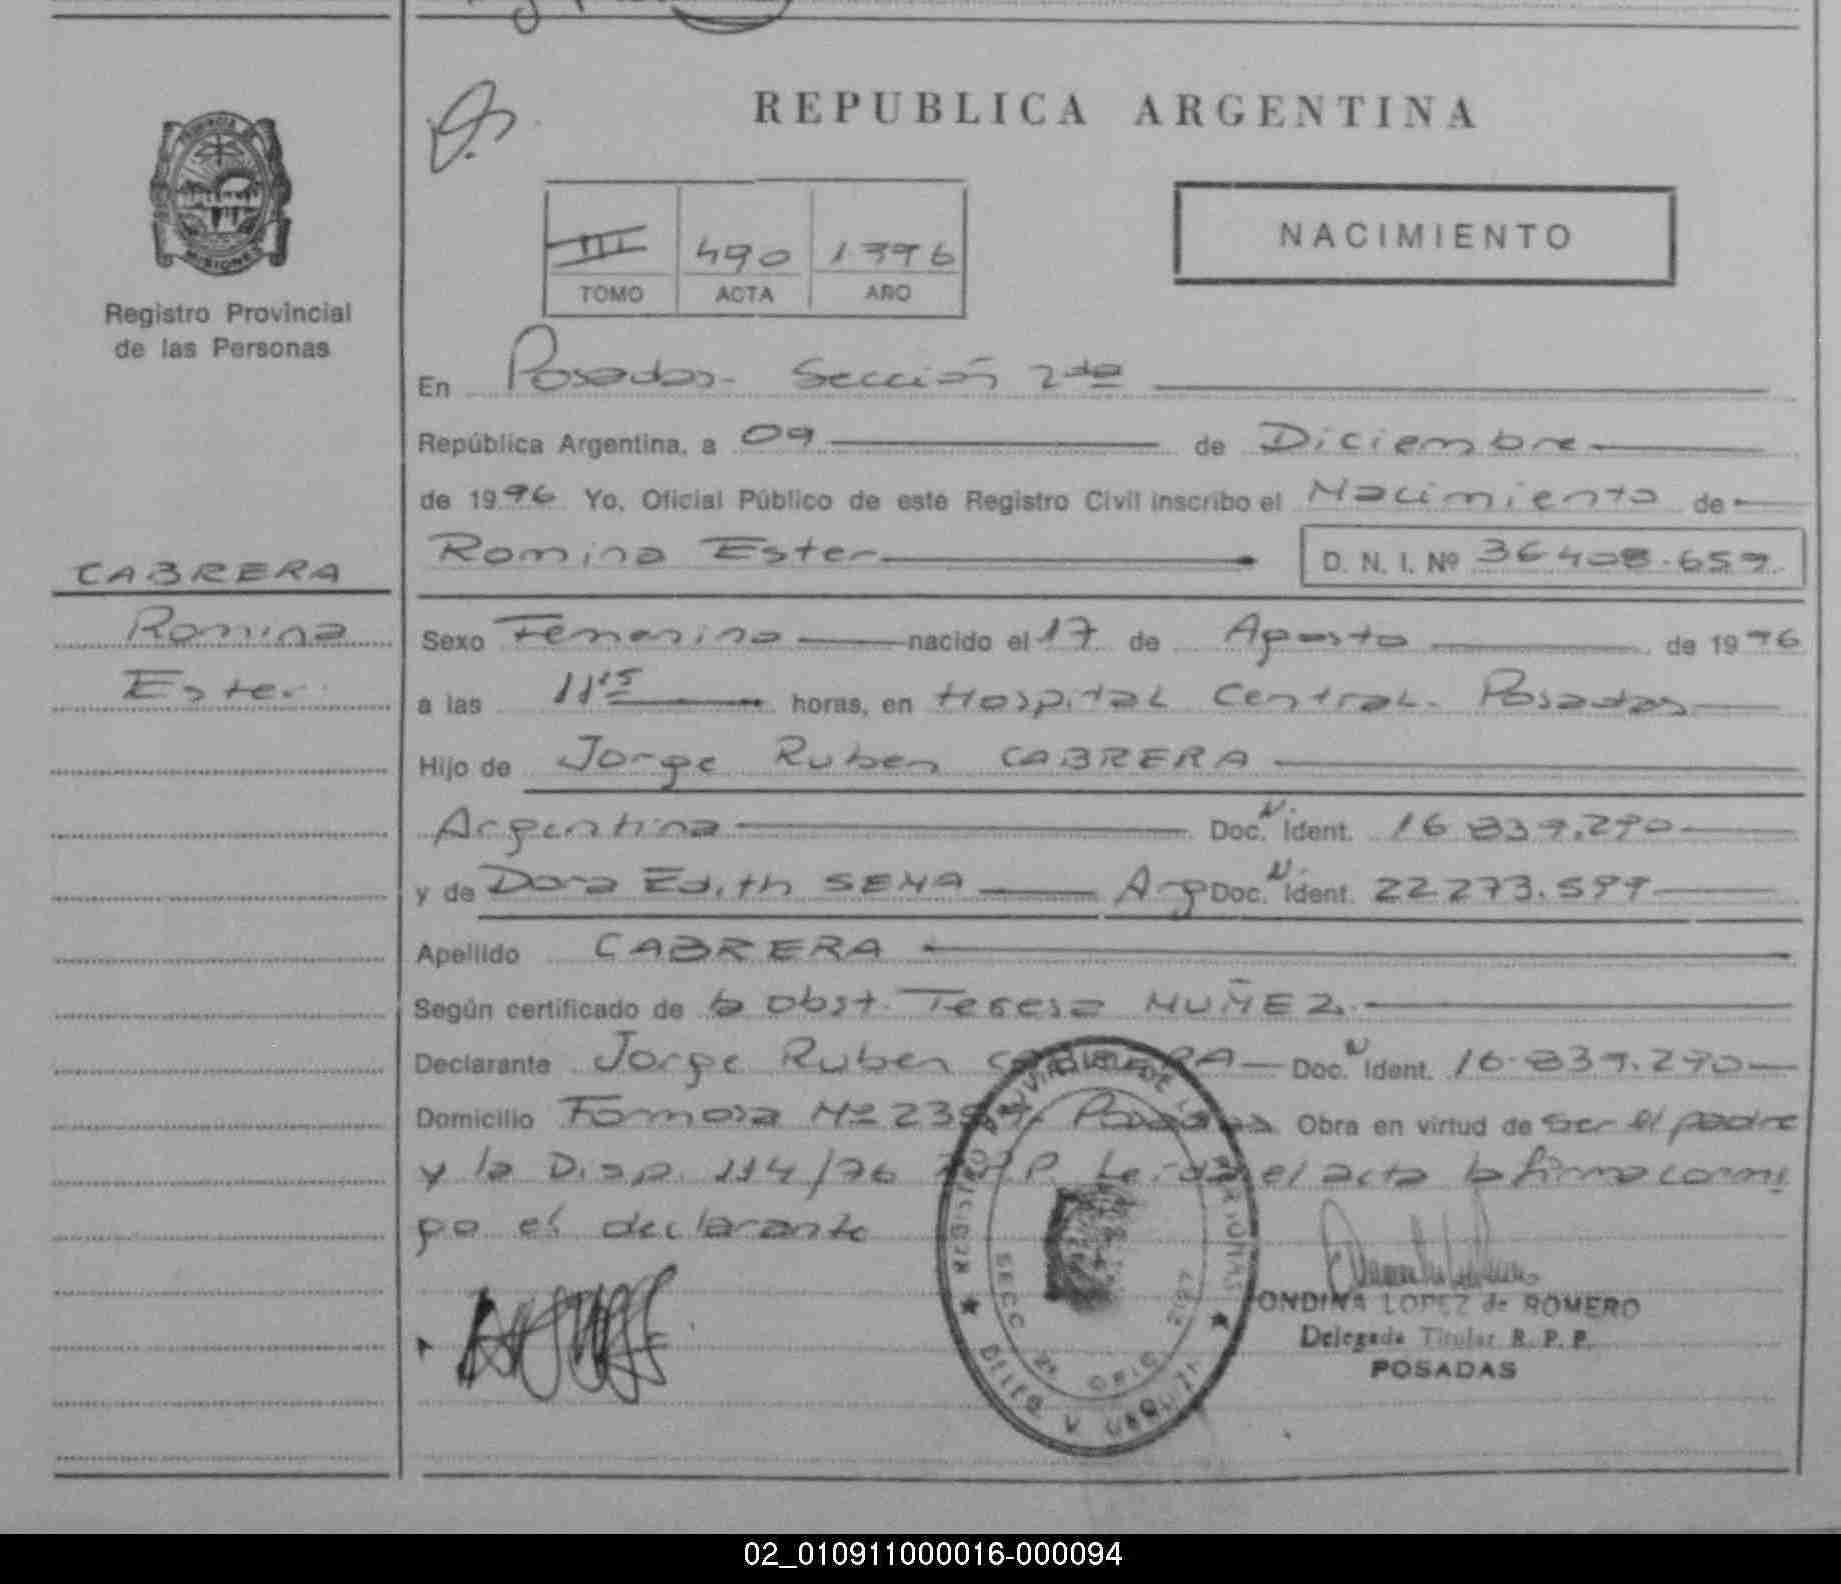 REPUBLICA ARGENTINA
PROVINCIA DE
MISIONES
Registro Provincial
de las Personas
III 490 1996
TOMO ACTA AÑO
NACIMIENTO
En Posadas- Sección 2da
República Argentina, a 09 de Diciembre
de 1996 Yo, Oficial Público de este Registro Civil inscribo el Nacimiento de
Romina Ester D. N. I. Nº 36408.659
CABRERA
Romina
Ester
Sexo Femenino nacido el 17 de Agosto de 1996
a las 11 15 horas, en Hospital Central. Posadas
Hijo de Jorge Ruben CABRERA
Argentina Doc. N. Ident. 16 839.290
y de Dora Edith SENA Arg Doc. N. Ident. 22273.599
Apellido CABRERA
Según certificado de la Obst. Teresa NUÑEZ
Declarante Jorge Ruben CABRERA Doc. N Ident. 16.839.290
Domicilio Formosa Nº Posadas Obra en virtud de ser el padre
y la Disp. 114/96 Leida el acta la firma conmi
go el declarante
REGISTRO PROVINCIAL DE LAS PERSONAS
SECC 2ª OFIC
DELEG. V. URQUIZA
ONDINA LOPEZ de ROMERO
Delegada Titular R. P. P.
POSADAS
02_010911000016-000094